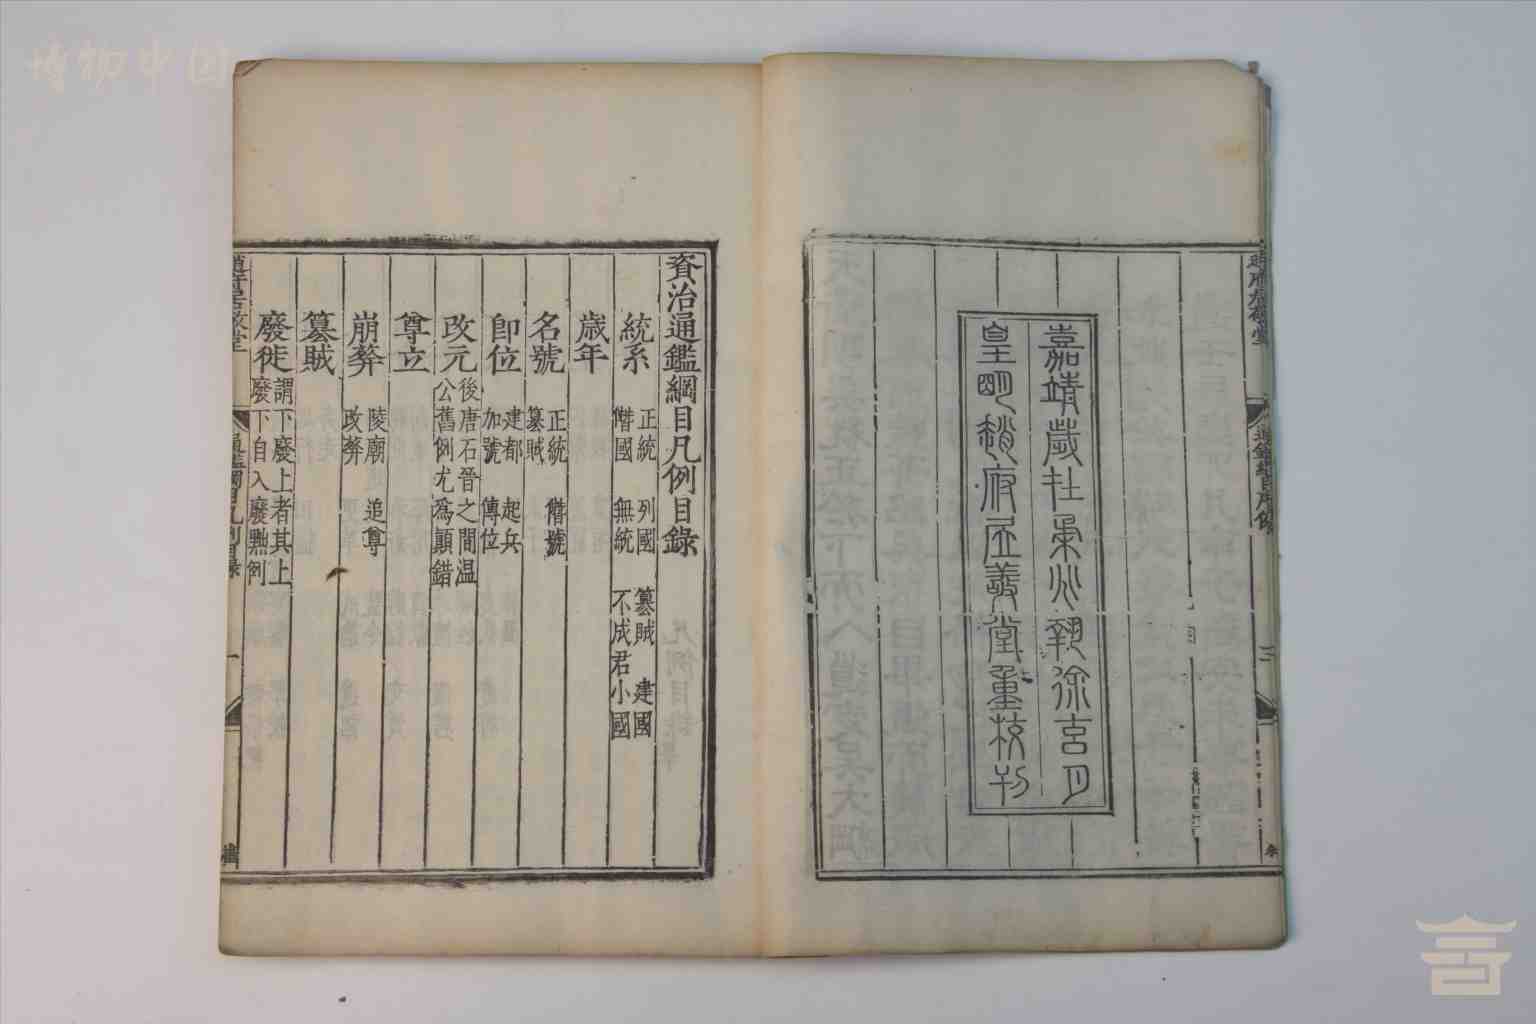 博物中国
嘉靖歲在柔兆執徐玄月
皇明趙府居敬堂重校刊
資治通鑑綱目凡例目錄
統系 正統 列國 篡賊 建國
僭國 無統 不成君小國
歲年
名號 正統 僭號
篡賊
即位 建都 起兵
加號 傳位
改元 後唐石晉之間温
公舊例尤爲顛錯
尊立
崩葬 陵廟 追尊
改葬
篡賊
廢徙 謂下廢上者其上
廢下自入廢黜例
趙府居敬堂
通鑑綱目凡例目錄
一